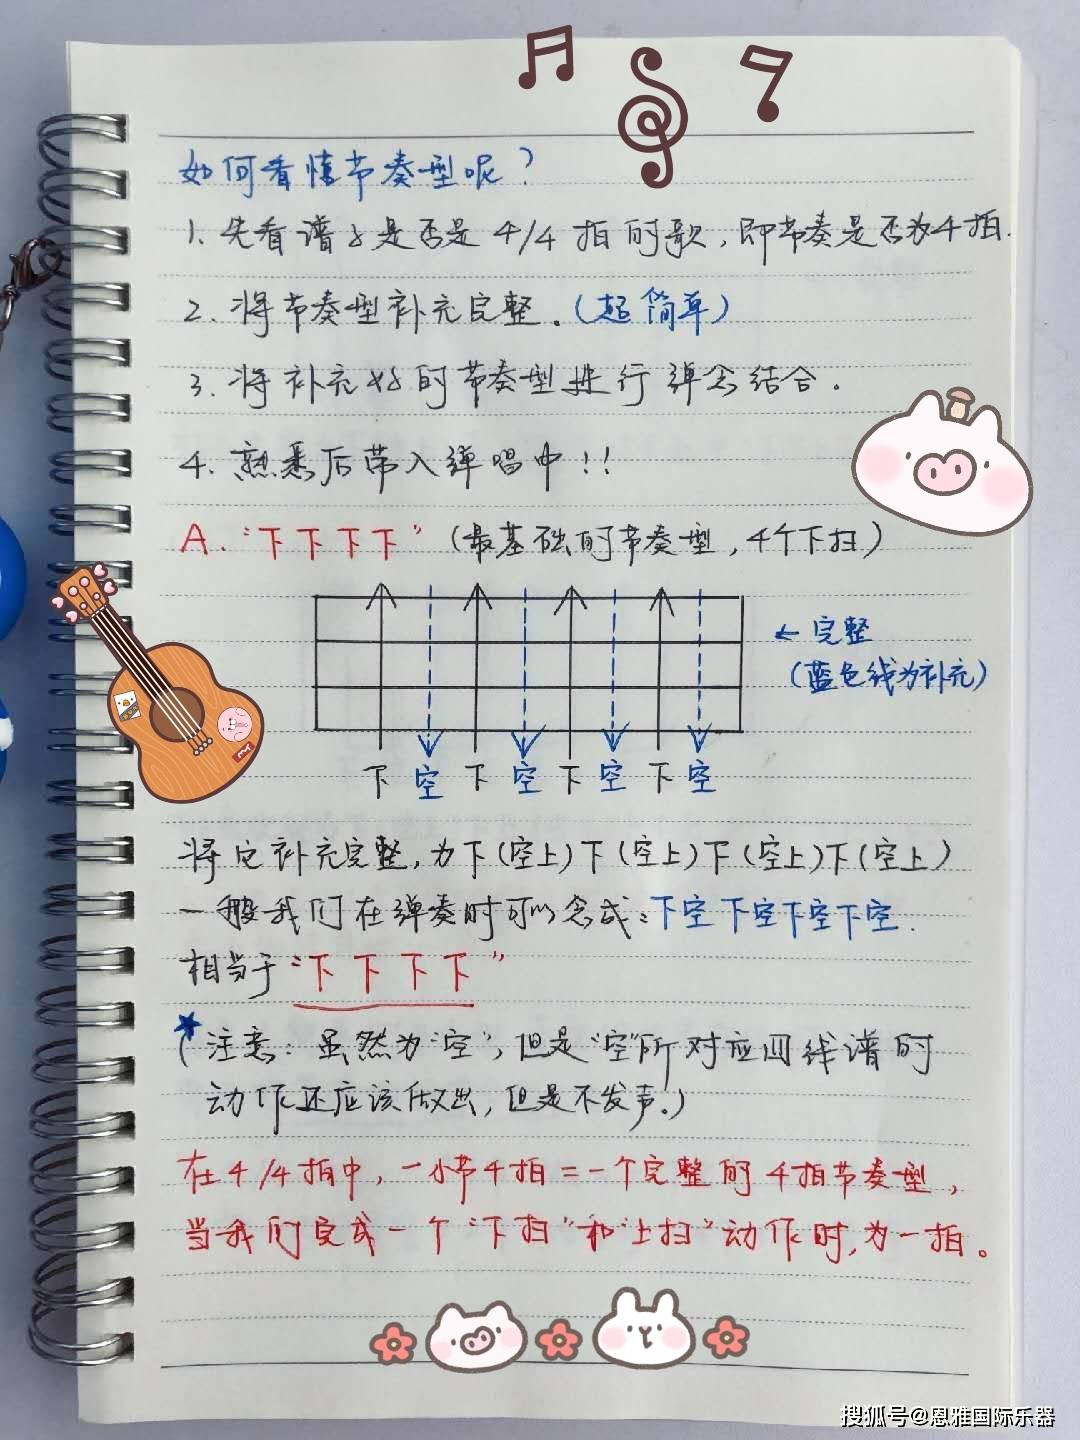 如何看懂节奏型呢？
1. 先看谱子是否是4/4拍的歌，即节奏是否为4拍.
2. 将节奏型补充完整。(超简单)
3. 将补充好的节奏型进行弹念结合.
4. 熟悉后带入弹唱中!!
A. “下下下下” (最基础的节奏型，4个下扫)
← 完整
(蓝色线为补充)
下 空 下 空 下 空 下 空
将它补充完整，为下(空上)下(空上)下(空上)下(空上)
一般我们在弹奏时可以念成：下空下空下空下空.
相当于“下下下下”
(注意：虽然为“空”，但是“空”所对应四线谱的
动作还应该做出，但是不发声.)
在4/4拍中，一小节4拍=一个完整的4拍节奏型，
当我们完成一个“下扫”和“上扫”动作时，为一拍。
搜狐号@恩雅国际乐器